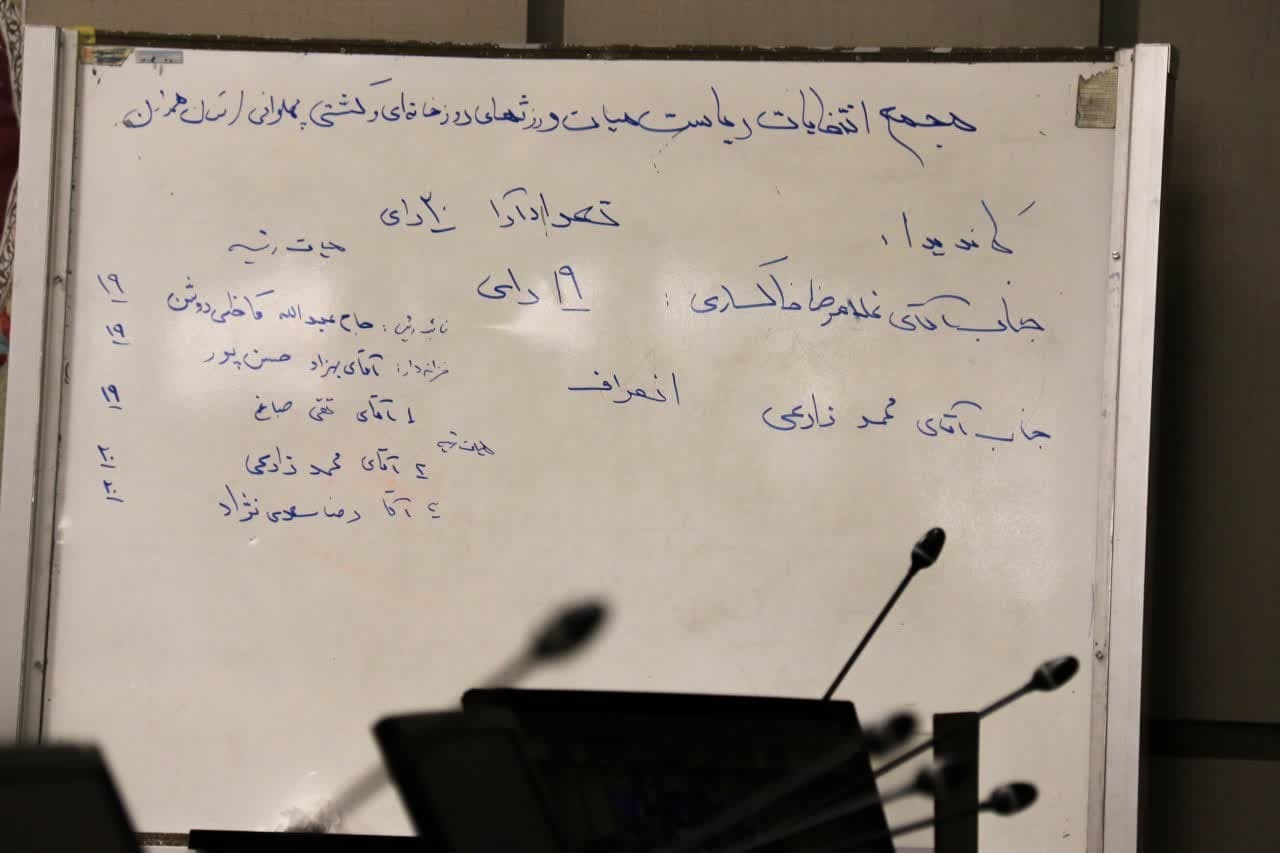 مجمع انتخابات ریاست هیات ورزشهای زورخانه‌ای و کشتی پهلوانی استان همدان
کاندیدا:
تعداد آرا ۲۰ رای
جناب آقای غلامرضا خاکساری : ۱۹ رای
جناب آقای محمد زارعی انصراف
هیات رئیسه
نائب رئیس: حاج عبدالله کاظمی روشن ۱۹
خزانه‌دار: آقای بهزاد حسن پور ۱۹
هیات رئیسه
۱ آقای تقی صباغ ۱۹
۲ آقای محمد زارعی ۲۰
۳ آقا رضا سعدی نژاد ۲۰